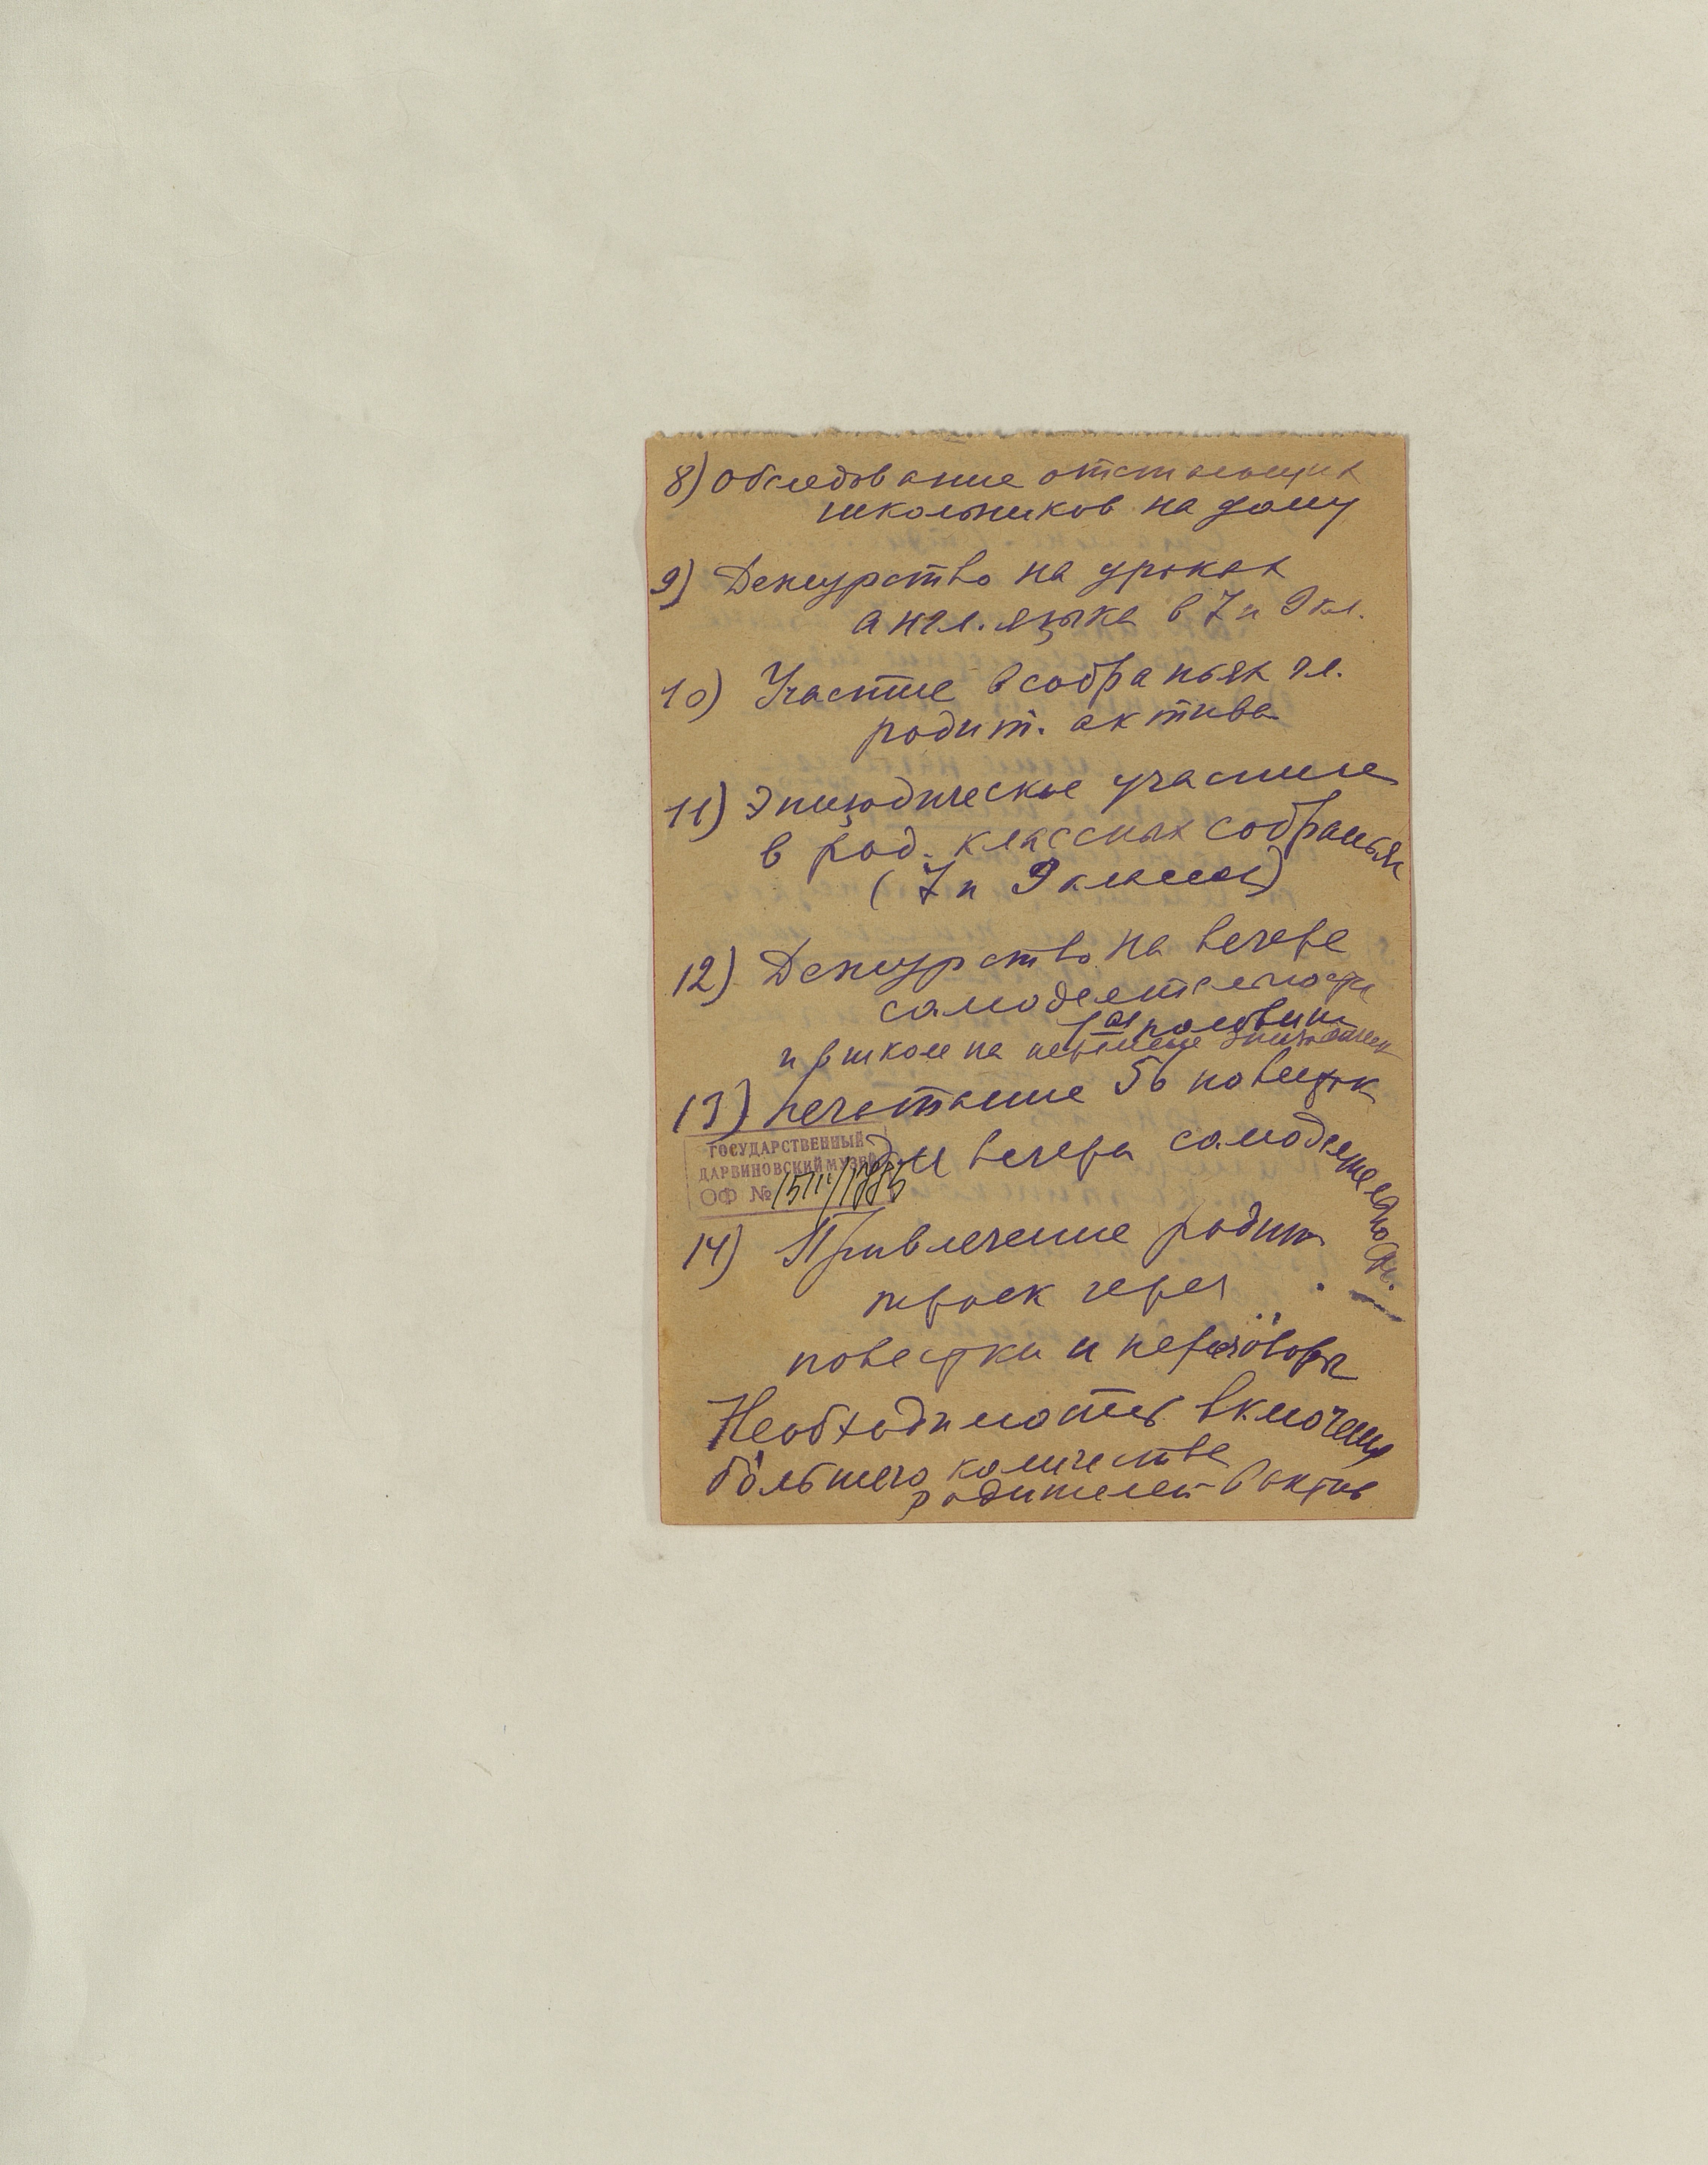 8) Обследование отстающих
школьников на дому
9) Дежурство на уроках
англ. языка в 7 и 9 кл.
10) Участие в собраньях гл.
родит. актива
11) Эпизодическое участие
в род. классных собраньях
(7 и 9 классов)
12) Дежурство на вечере
самодеятельности
1ая половина
и в школе на перемене эпизодическ
13) печатание 56 повесток
для вечера самодеятельности.
ГОСУДАРСТВЕННЫЙ
ДАРВИНОВСКИЙ МУЗЕЙ
ОФ №
14) Привлечение родит.
троек через
повестки и переговоры
Необходимость включения
бо́льшего количества
родителей в актив